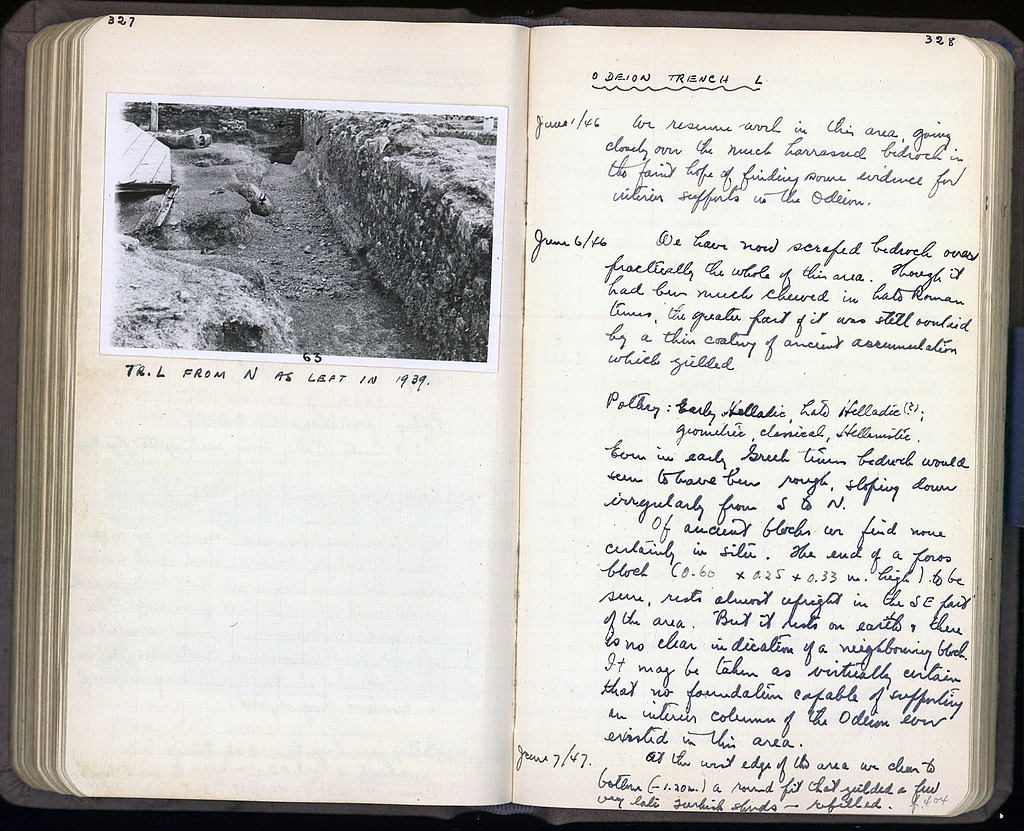 327
63
TR. L FROM N AS LEFT IN 1939.
328
ODEION TRENCH L
June 1/46 We resume work in this area, going
closely over the much harrassed bedrock in
the faint hope of finding some evidence for
interior supports in the Odeion.
June 6/46 We have now scraped bedrock over
practically the whole of this area. Though it
had been much chewed in Late Roman
times, the greater part of it was still overlaid
by a thin coating of ancient accumulation
which yielded
Pottery: Early Helladic, Late Helladic (?);
geometric, classical, Hellenistic.
Even in early Greek times bedrock would
seem to have been rough, sloping down
irregularly from S to N.
Of ancient blocks we find none
certainly in situ. The end of a poros
block (0.60 x 0.25 x 0.33 m. high) to be
sure, rests almost upright in the SE part
of the area. But it rests on earth & there
is no clear indication of a neighbouring block.
It may be taken as virtually certain
that no foundation capable of supporting
an interior column of the Odeion ever
existed in this area.
June 7/47. At the west edge of the area we clear to
bottom (-1.20m) a round pit that yielded a few
very late Turkish sherds — refilled. p. 404